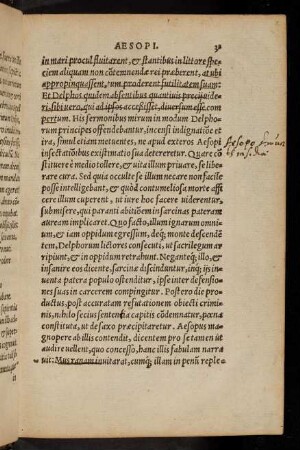 AESOPI.
in mari procul fluitarent, & stantibus in littore spe-
ciem aliquam non cōtemnēdæ rei præberent, at ubi
appropinquassent, tum prodiret futilitatem suam:
Et Delphos quidem absentibus quantiuis precij uide-
ri, sibi uero, qui ad ipsos accessisset, diuersum esse com
pertum. His sermonibus mirum in modum Delpho-
rum principes offendebantur, incensi indignatiōe et
ira, simul etiam metuentes, ne apud exteros Aesopi
insectatiōibus existimatio sua detereretur. Quare cō
stituere è medio tollere, et uita illum priuare, se libe-
rare cura. Sed quia occulte se illum necare non facile
posse intelligebant, & quòd contumeliosa morte affi
cere illum cuperent, ut iure hoc facere uiderentur,
submisere, qui paranti abitiōem in sarcinas pateram
auream implicaret. Quo facto, illum ignarum omni
um, & iam oppidum egressum, deq; monte descendē
tem, Delphorum lictores consecuti, ut sacrilegum ar
ripiunt, & in oppidum retrahunt. Neganteq; illo, &
insanire eos dicente. sarcinæ discinduntur, inq; ijs in-
uenta patera populo ostenditur, ipse inter defensio-
nes suas in carcerem compingitur. Postero die pro-
ductus, post accuratam refutationem obiecti crimi-
nis, nihilo secius sententia capitis cōdemnatur, pœna
constituta, ut de saxo præcipitaretur. Aesopus ma-
gnopere ab illis contendit, dicentem pro se tamen ut
audire uellent, quo concesso, hanc illis fabulam narra
uit: Mus ranam inuitarat, cumq; illam in penū reple